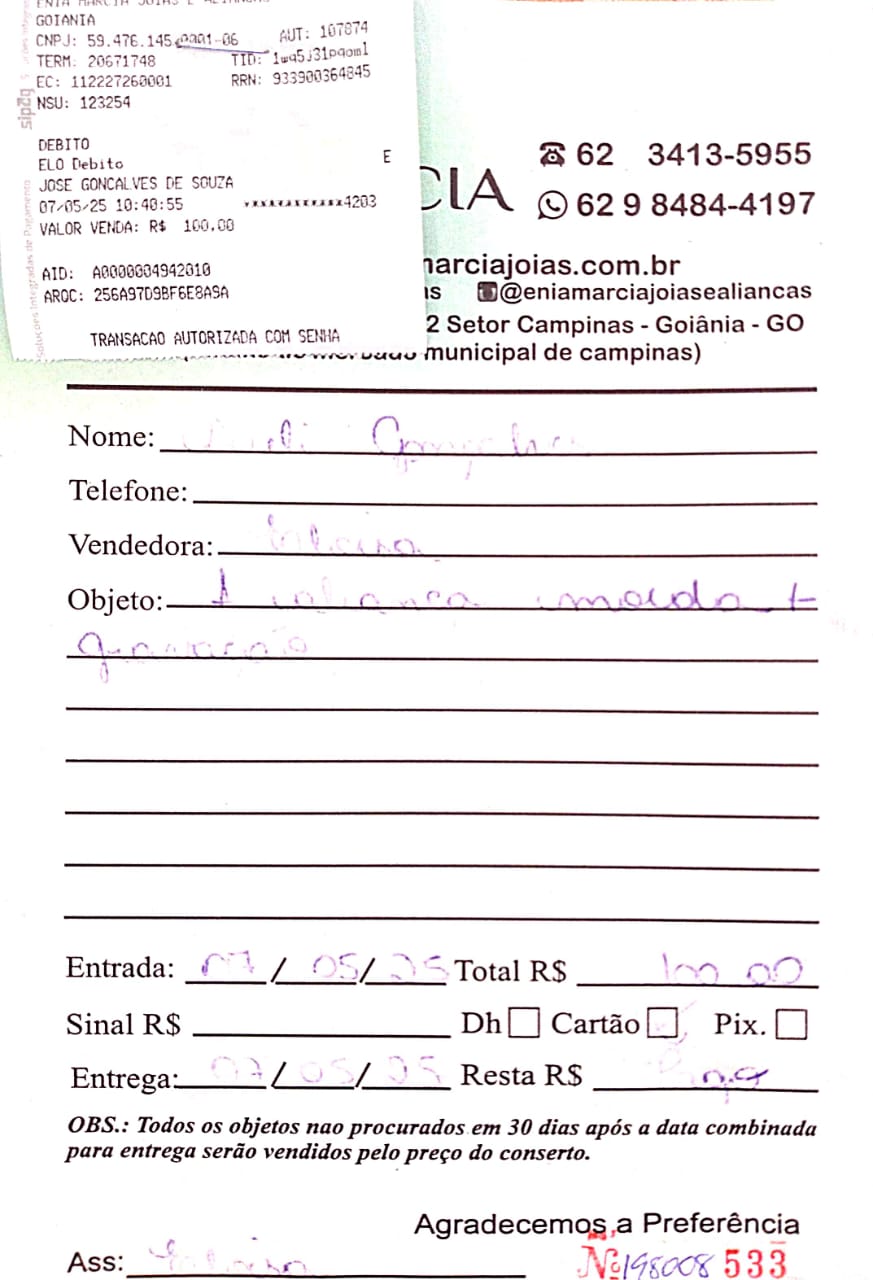 ENIA MARCIA JOIAS E ALIANCAS
GOIANIA
CNPJ: 59.476.145/0001-06 AUT: 107874
TERM: 20671748 TID: 1wq5j31pqoml
EC: 112227260001 RRN: 933900364845
NSU: 123254
sipag
Soluções Integradas de Pagamento
DEBITO
ELO Debito E
JOSE GONCALVES DE SOUZA
07/05/25 10:40:55 ************4203
VALOR VENDA: R$ 100,00
AID: A0000004942010
ARQC: 256A97D9BF6E8A9A
TRANSACAO AUTORIZADA COM SENHA
CIA
62 3413-5955
62 9 8484-4197
marciajoias.com.br
as @eniamarciajoiasealiancas
2 Setor Campinas - Goiânia - GO
municipal de campinas)
Nome: Gonçalves
Telefone:
Vendedora:
Objeto: 1 aliança moeda +
gravação
Entrada: 07/05/25 Total R$ 100 00
Sinal R$ Dh Cartão Pix.
Entrega: 07/05/25 Resta R$ Pago
OBS.: Todos os objetos nao procurados em 30 dias após a data combinada
para entrega serão vendidos pelo preço do conserto.
Agradecemos a Preferência
Ass: Nº 198008 533